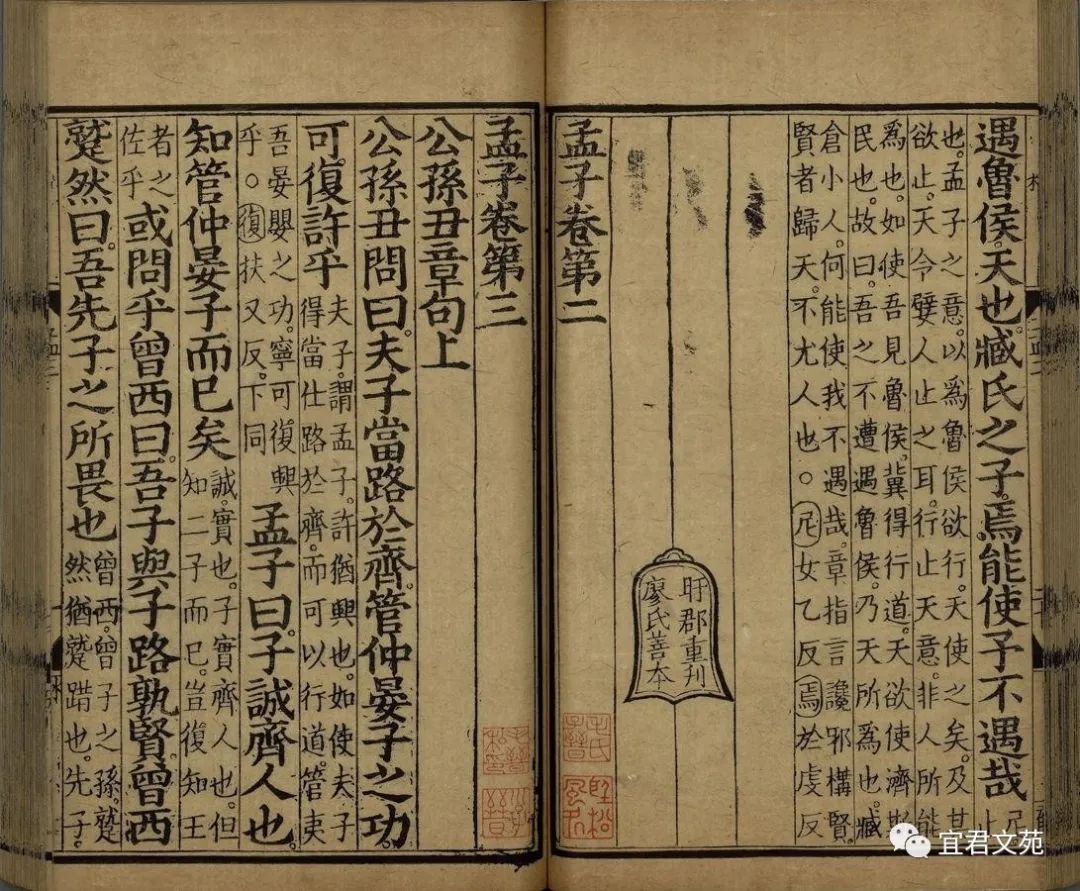 遇魯侯。天也。臧氏之子。焉能使予不遇哉
尼
止
也。孟子之意。以爲魯侯欲行。天使之矣。及其
欲止。天令嬖人止之耳。行止天意。非人所能
爲也。如使吾見魯侯。冀得行道。天欲使濟斯
民也。故曰。吾之不遭遇魯侯。乃天所爲也。臧
倉小人。何能使我不遇哉。章指言讒邪構賢。
賢者歸天。不尤人也。○尼女乙反焉於虔反
孟子卷第二
旴郡重刊
廖氏善本
孟子卷第三
公孫丑章句上
公孫丑問曰。夫子當路於齊。管仲晏子之功
可復許乎
夫子。謂孟子。許猶興也。如使夫子
得當仕路於齊。而可以行道。管夷
吾晏嬰之功。寧可復興
乎。○復扶又反。下同
孟子曰。子誠齊人也。
知管仲晏子而已矣
誠。實也。子實齊人也。但
知二子而已。豈復知王
者之
佐乎
或問乎曾西曰。吾子與子路孰賢。曾西
蹵然曰。吾先子之所畏也
曾西。曾子之孫。蹵
然猶蹵踖也。先子。
宜君文苑